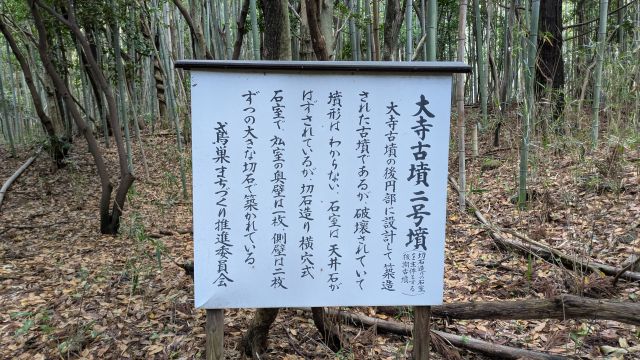 大寺古墳二号墳
切石造りの石室
を主体とする
後期古墳
大寺古墳の後円部に設計して築造
された古墳であるが、破壊されていて
墳形はわからない。石室は天井石が
はずされているが、切石造り横穴式
石室で、玄室の奥壁は一枚、側壁は二枚
ずつの大きな切石で築かれている。
鳶巣まちづくり推進委員会